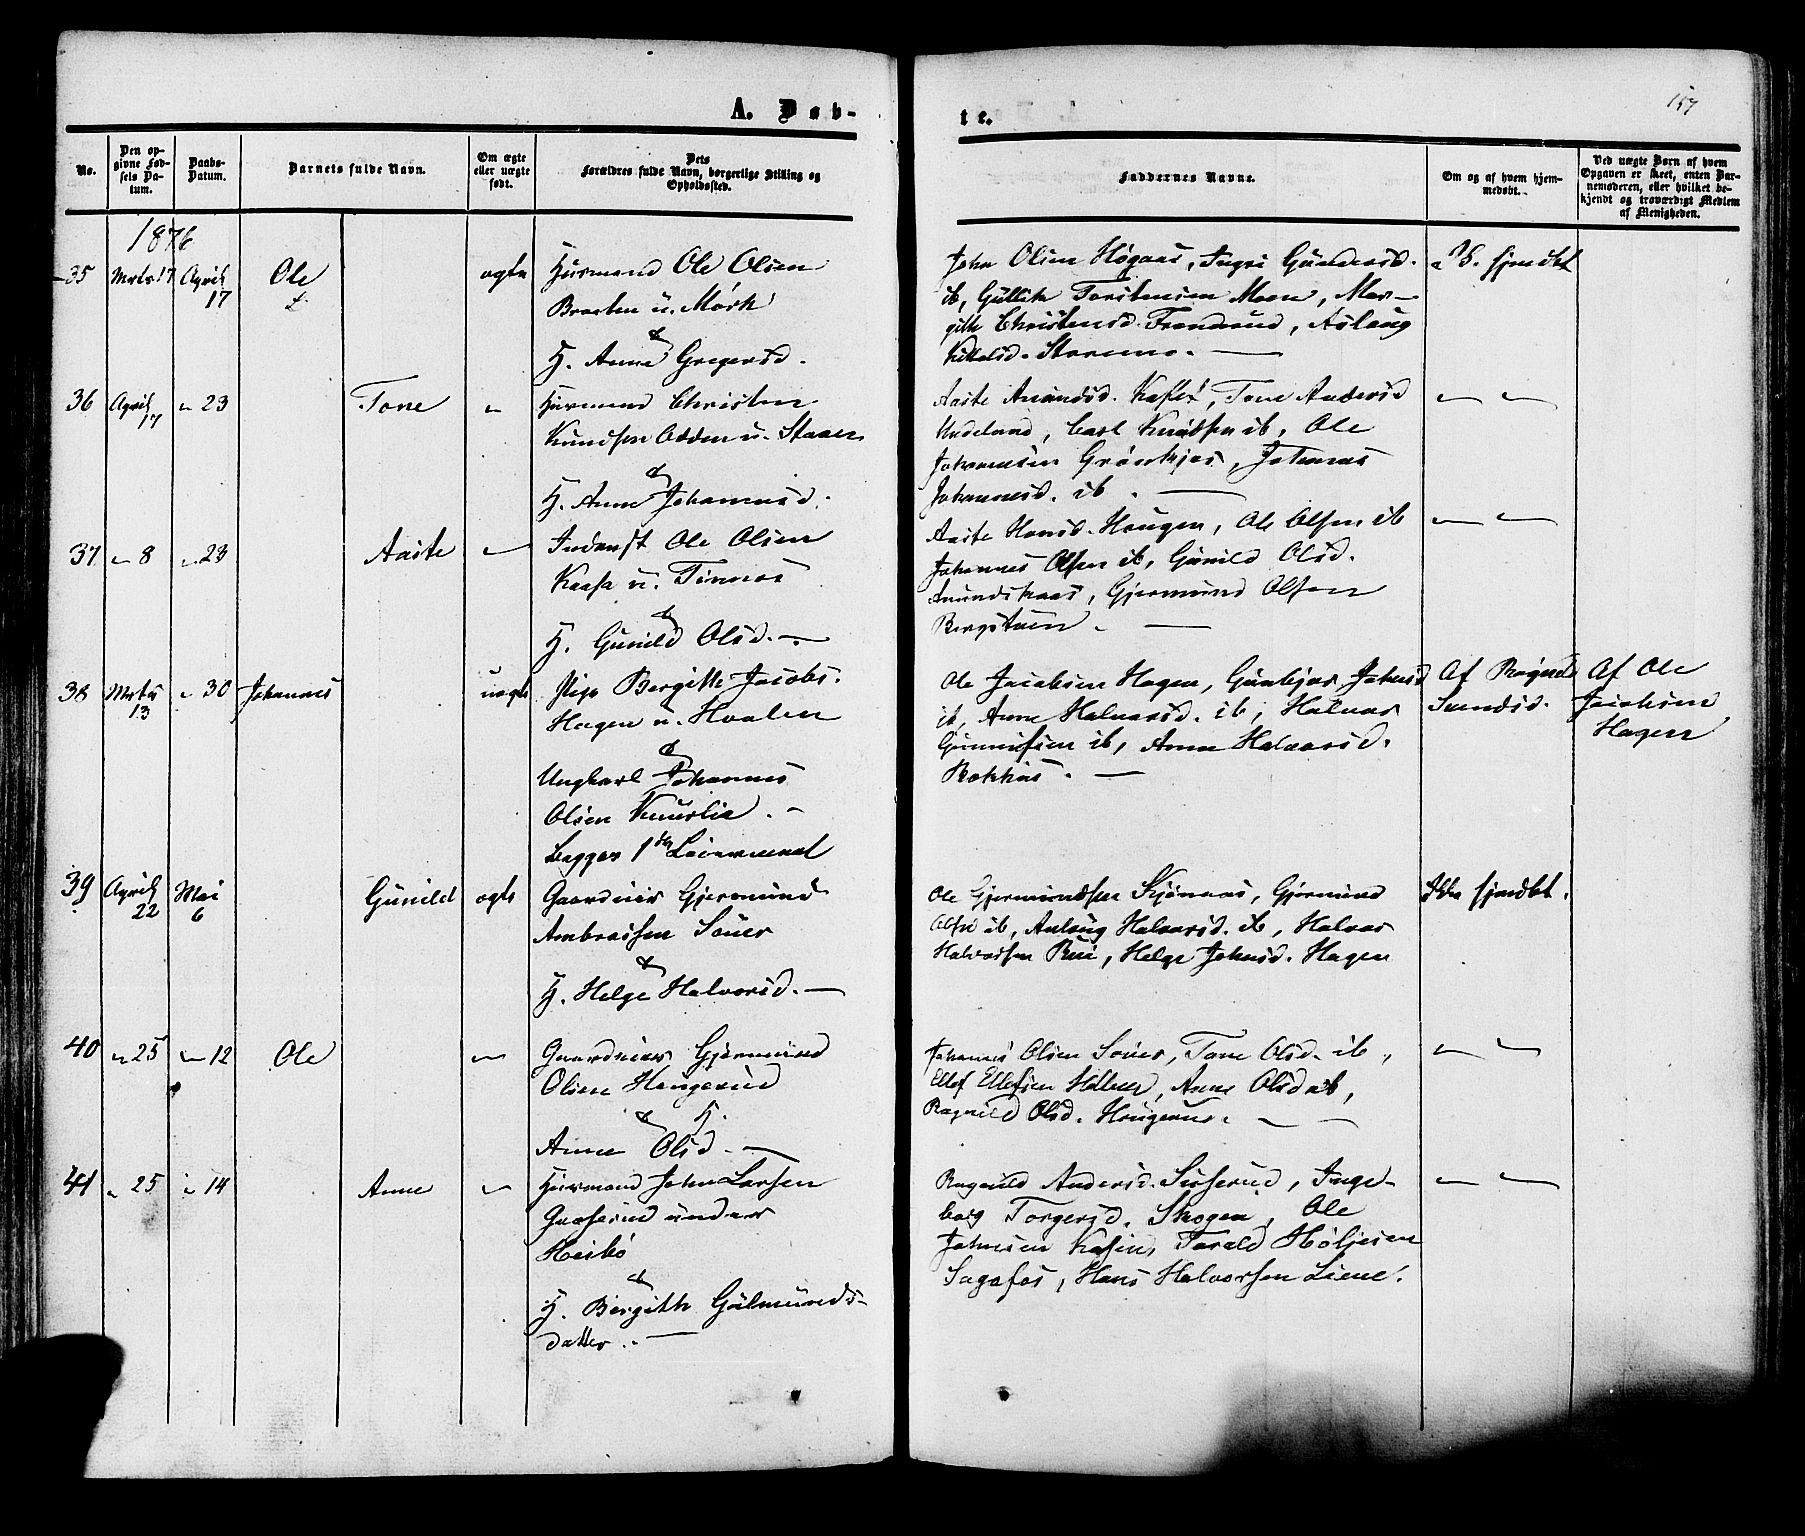 157
A. Døb-
te.
No.
Den op-
givne Fød-
sels Da-
tum.
Daabs-
Datum.
Barnets fulde Navn.
Om ægte
eller uægte
født.
Dets
Forældres fulde Navn, borgerlige Stilling og
Opholdssted.
Faddernes Navne.
Om og af hvem hjem-
medøbt.
Ved uægte Børn af hvem
Opgaven er skeet, enten Bar-
nemoderen, eller hvilket be-
kjendt og troværdigt Medlem
af Menigheden.
1876
35 Marts 17 April 17 Ole ægte
Husmand Ole Olsen
Braaten u. Mørk
&
H. Anne Gregersd.
John Olsen Høgaas, Ingri Gundersd.
ib, Gullik Torstensen Moen, Mar-
gith Christensd. Trondrud, Aslaug
Kittelsd. Staremo. —
hjmdbt
36 April 17 " 23 Tone "
Husmand Christen
Knudsen Odden u.
&
H. Anne Johannesd.
Aaste Amundsd. Tone Andersd
Carl Knudsen ib, Ole
Johannesen Grønkjær, Johannes
Johannesd. ib. —
" "
37 " 8 " 23 Aaste "
Inderst Ole Olsen
Kaasa u. Tinnes
&
H. Gunild Olsd. —
Aaste Hansd. Haugen, Ole Olsen ib
Johannes Olsen ib, Gunild Olsd.
Amundskaas, Gjermund Olsen
Bergstuen. —
" "
38 Marts 13 " 30 Johannes uægte
Pige Bergith Jacobs.
Hagen u. Hvalen
&
Ungkarl Johannes
Olsen Knurlia. —
Begges 1ste Leiermaal
Ole Jacobsen Hagen, Gunbjør Johnsd
ib, Anne Halvorsd. ib, Halvor
Gunnufsen ib, Anne Halvorsd.
Bakkas. —
Af Ragnild
Svendsd.
Af Ole
Jacobsen
Hagen
39 April 22 Mai 6 Gunild ægte
Gaardeier Gjermund
Ambrosen Souer
&
H. Helge Halvorsd. —
Ole Gjermundsen Skjønnaas, Gjermund
Olsen ib, Anlaug Halvorsd. ib, Halvor
Halvorsen Rui, Helge Johnsd. Hagen
Ikke hjmdbt.
40 " 25 " 12 Ole "
Gaardeier Gjermund
Olsen Haugerud
& H.
Anne Olsd. —
Johannes Olsen Souer, Tone Olsd. ib,
Ellef Ellefsen Anne Olsd ib,
Ragnild Olsd. Haugerud. —
" "
41 " 25 " 14 Anne "
Husmand John Larsen
Graaserud under
Heibø
&
H. Bergith Gulmunds-
datter. —
Ragnild Andersd. Inge-
borg Torgersd. Skogen, Ole
Johnsen Kasin, Torald Høljesen
Sagafos, Hans Halvorsen Liene.
" "